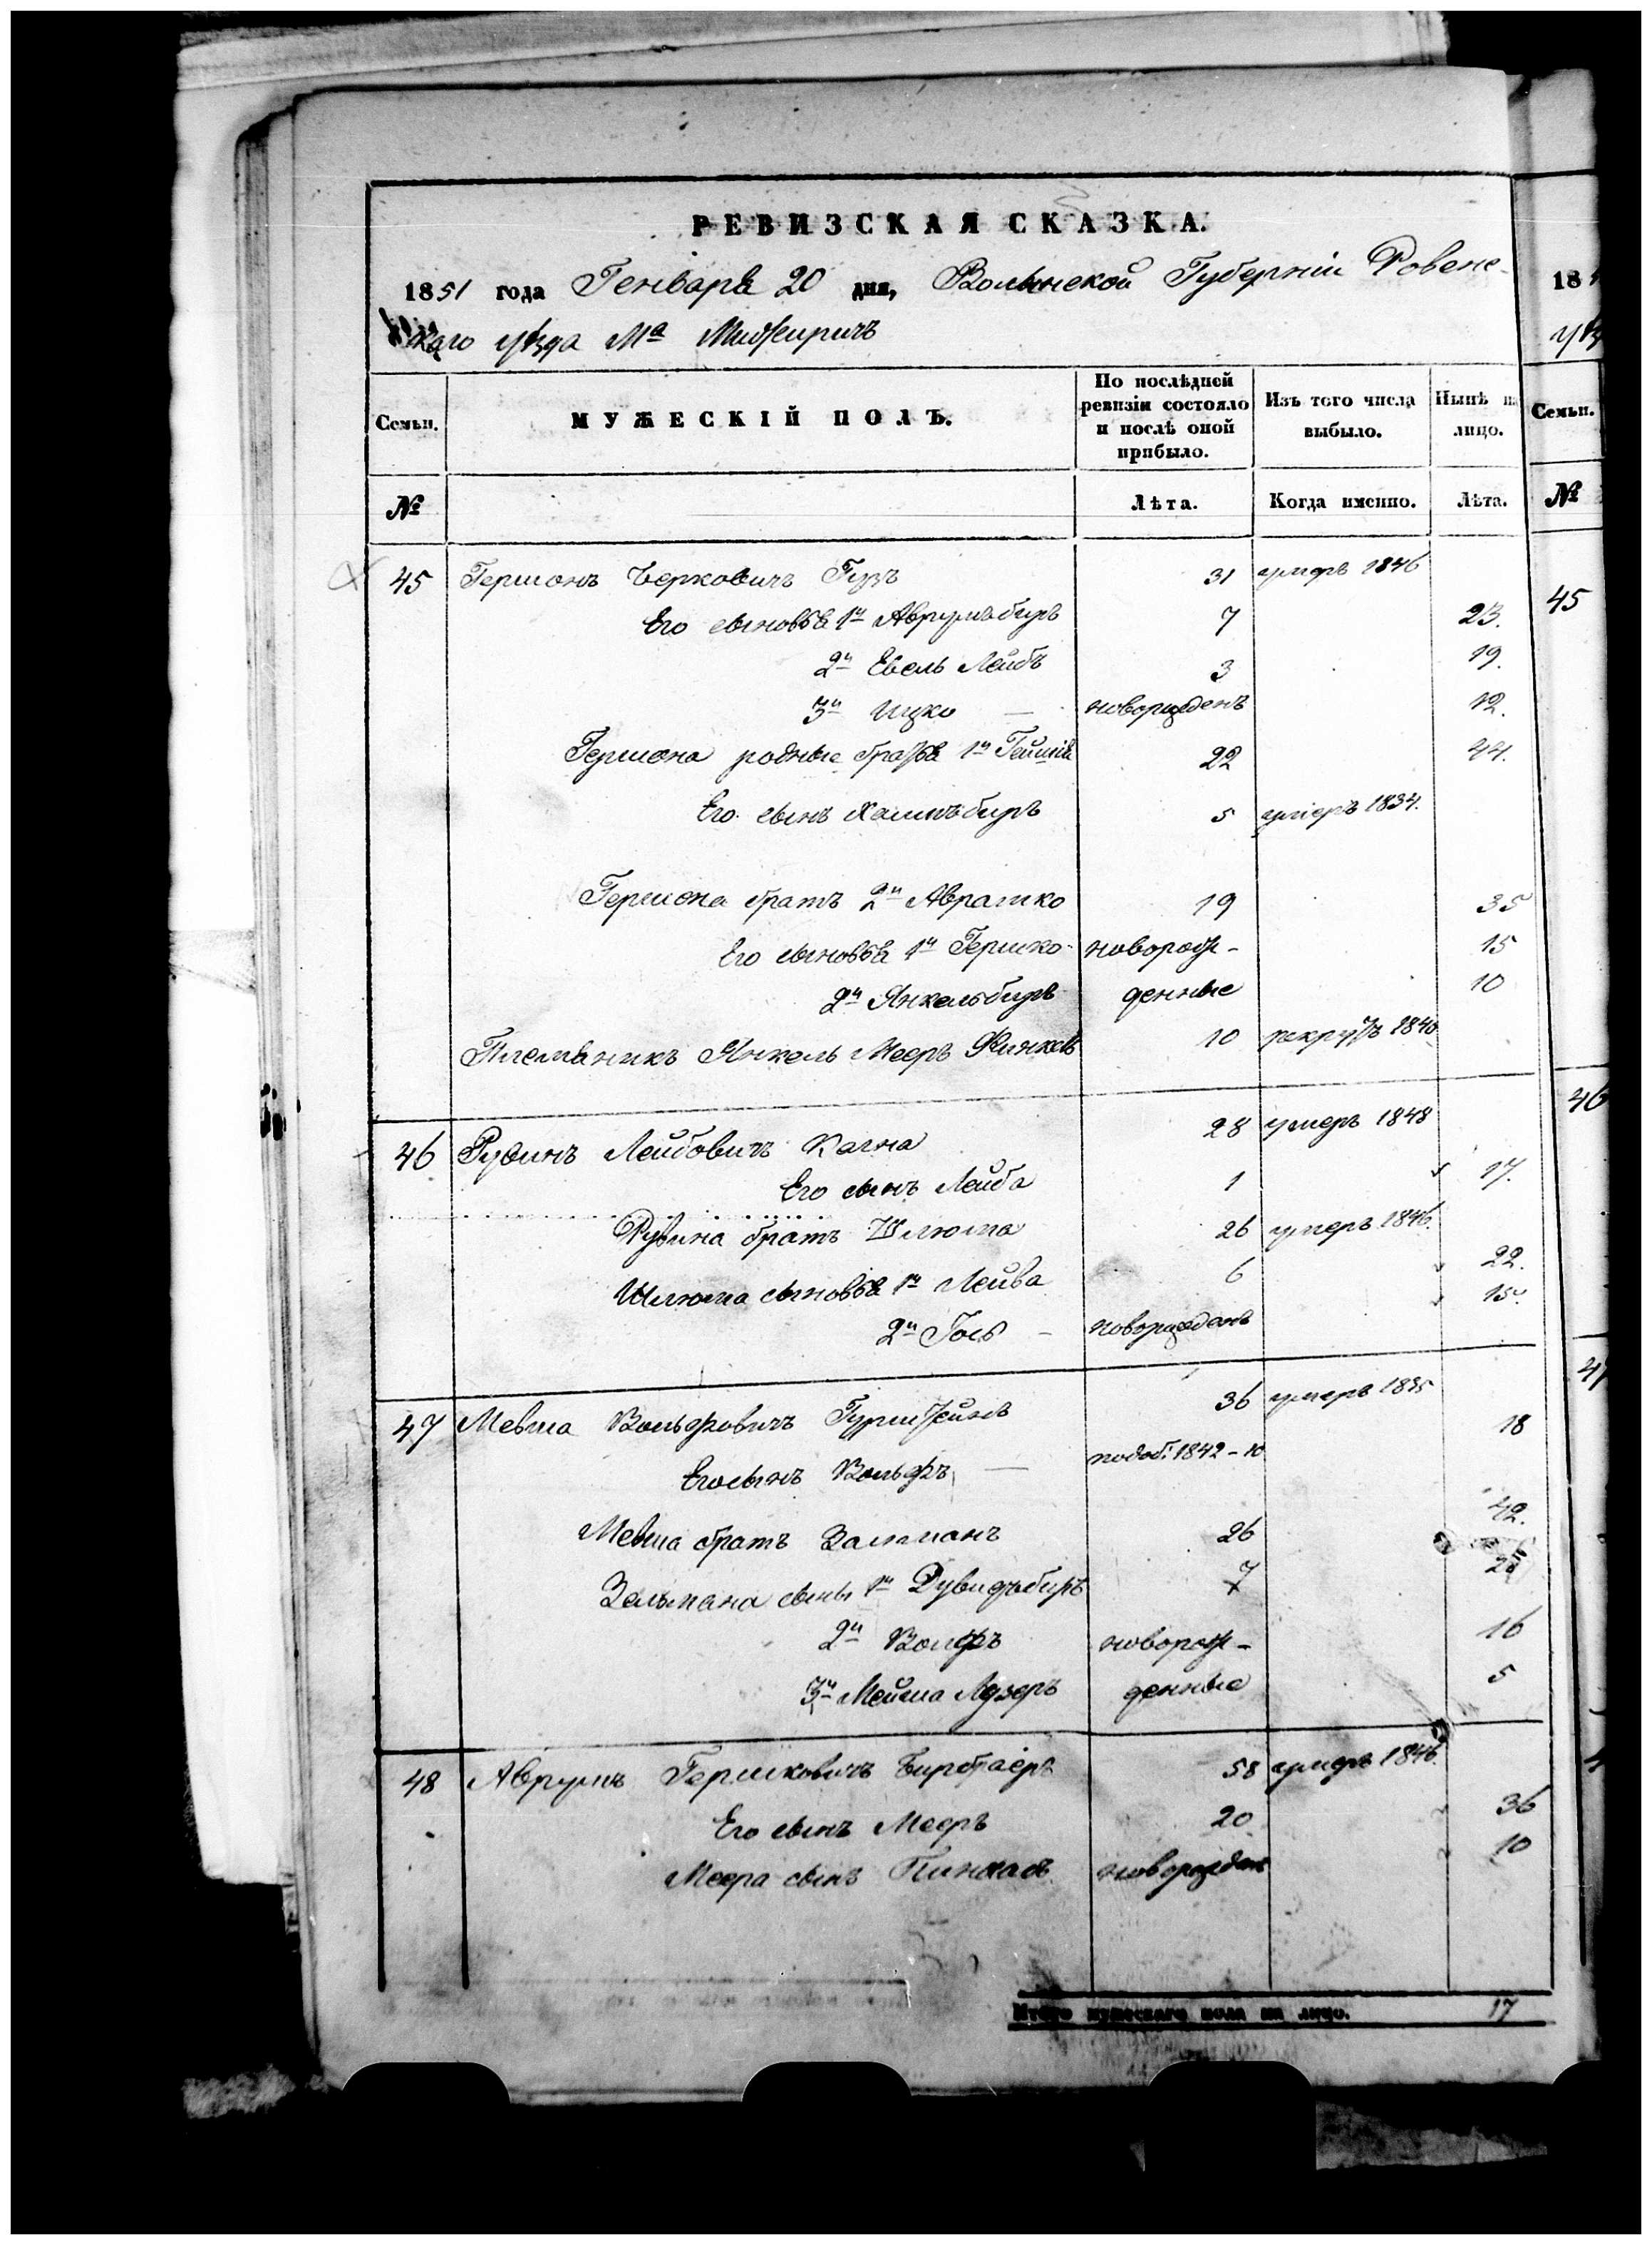 РЕВИЗСКАЯ СКАЗКА.
1851 года Генваря 20 дня, Волынской Губерніи Ровенс-
каго уѣзда Мa Межиричъ
Семьи. МУЖЕСКІЙ ПОЛЪ. По послѣдней ревизіи состояло и послѣ оной прибыло. Изъ того числа выбыло. Нынѣ на лицо.
№ Лѣта. Когда именно. Лѣта.
45 Гершонъ Берковичъ Гузъ 31 умеръ 1846
Его сыновья 1й Аврумъ биръ 7 23.
2й Евель Лейбъ 3 19.
3й Ицко — новорожденъ 12.
Гершона родные братья 1й 22 44.
Его сынъ Хаимъ биръ 5 умеръ 1834.
Гершона братъ 2й Аврамко 19 35
Его сыновья 1й Гершко новорож-
15
2й Янкель биръ денные 10
Племяникъ Янкель Мееръ 10 рекрутъ 1840
46 Рувинъ Лейбовичъ Кагна 28 умеръ 1848
Его сынъ Лейба 1 17.
Рувина братъ Шлюма 26 умеръ 1846.
Шлюма сыновья 1й Лейба 6 22.
2й Гось — новорожденъ 15.
47 Мевша Вольфовичъ Гурштейнъ 36 умеръ 1835
Его сынъ Вольфъ — 1842 - 10 18
Мевша братъ Залманъ 26 42.
Зельмана сыны 1й Дувидъ биръ 7
2й Вольфъ новорож- 16
3й Лузеръ денные 5
48 Аврумъ Гершковичъ 58 умеръ 1846.
Его сынъ Мееръ 20 36
Меера сынъ Пинхасъ новорожденъ 10
Итого мужескаго пола на лицо. 17
18
Семьи.
№
45
46